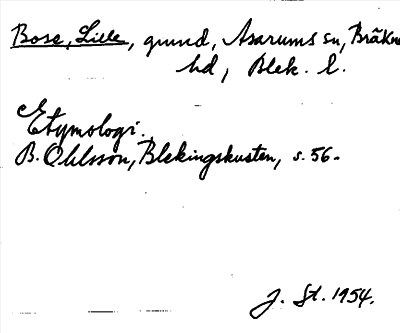 Bose, Lille, grund, Asarums sn, Bräkne
hd, Blek. l.
Etymologi.
B. Ohlsson, Blekingskusten, s. 56.
J. St. 1954.